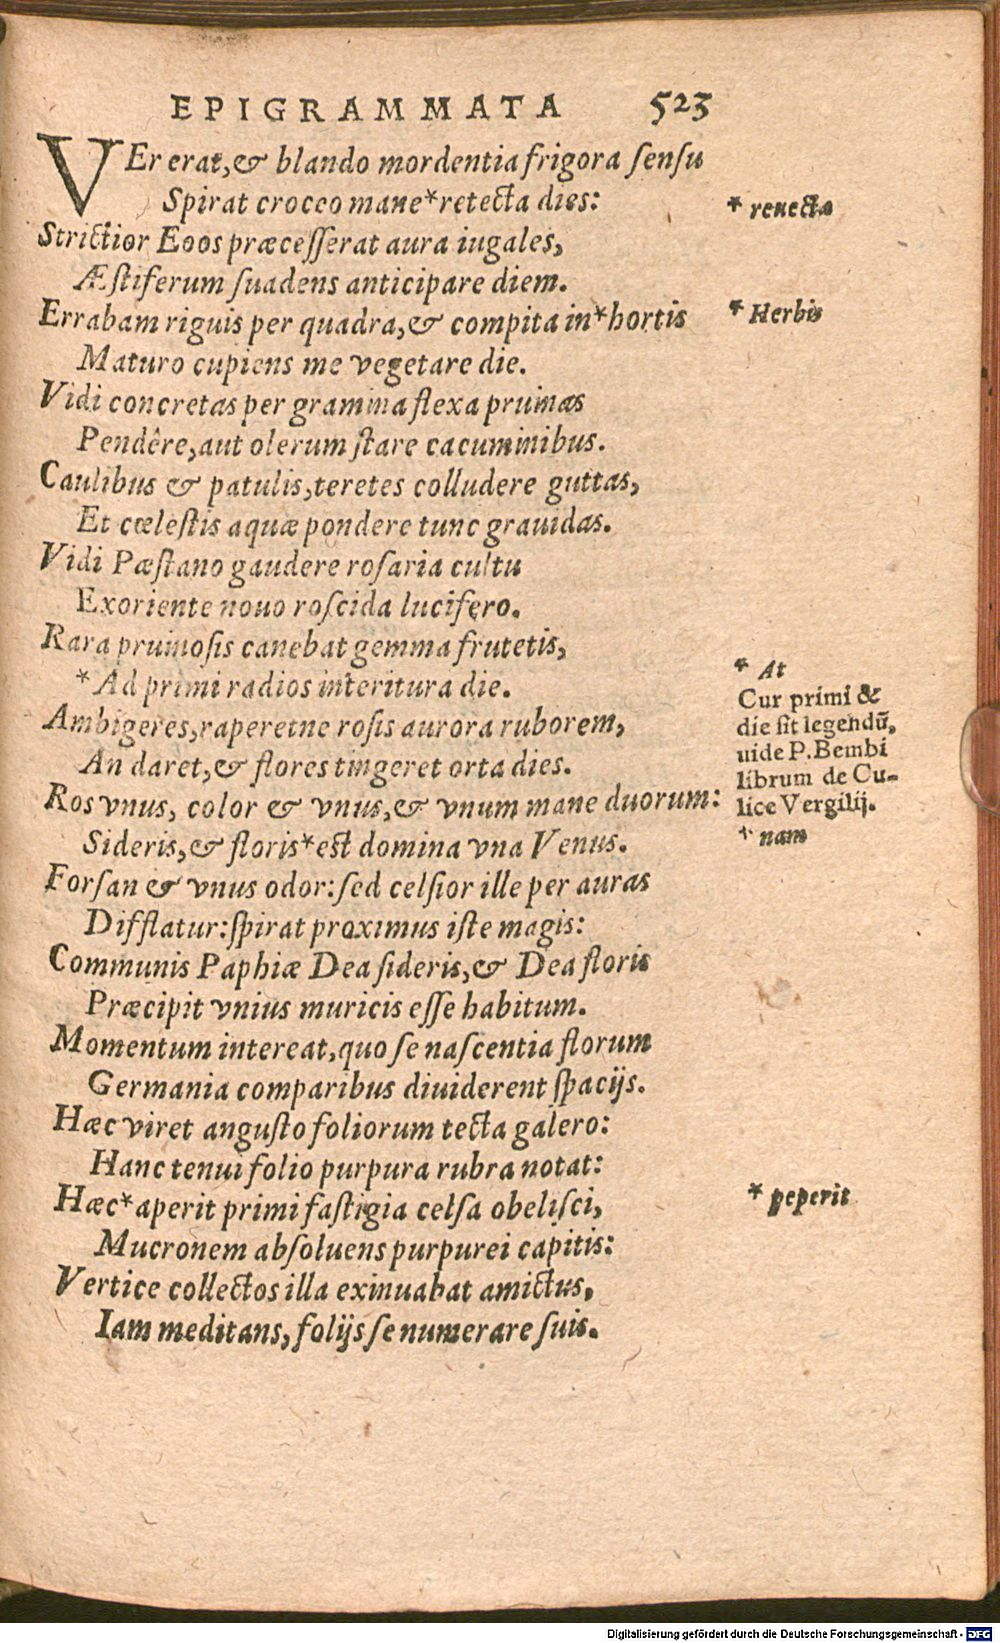 EPIGRAMMATA 523
VEr erat, & blando mordentia frigora sensu
Spirat croceo mane*retecta dies:
* renecta
Strictior Eoos præcesserat aura iugales,
Æstiferum suadens anticipare diem.
Errabam riguis per quadra, & compita in*hortis
* Herbis
Maturo cupiens me vegetare die.
Vidi concretas per gramina flexa pruinas
Pendêre, aut olerum stare cacuminibus.
Caulibus & patulis, teretes colludere guttas,
Et cœlestis aquæ pondere tunc grauidas.
Vidi Pæstano gaudere rosaria cultu
Exoriente nouo roscida lucifero.
Rara pruinosis canebat gemma frutetis,
*Ad primi radios interitura die.
* At
Cur primi &
die sit legendū,
uide P. Bembi
librum de Cu-
lice Vergilij.
Ambigeres, raperetne rosis aurora ruborem,
An daret, & flores tingeret orta dies.
Ros vnus, color & vnus, & vnum mane duorum:
Sideris, & floris*est domina vna Venus.
* nam
Forsan & vnus odor: sed celsior ille per auras
Difflatur: spirat proximus iste magis:
Communis Paphiæ Dea sideris, & Dea floris
Præcipit vnius muricis esse habitum.
Momentum intereat, quo se nascentia florum
Germania comparibus diuiderent spacijs.
Hæc viret angusto foliorum tecta galero:
Hanc tenui folio purpura rubra notat:
Hæc*aperit primi fastigia celsa obelisci,
* peperit
Mucronem absoluens purpurei capitis:
Vertice collectos illa exinuabat amictus,
Iam meditans, folijs se numerare suis.
Digitalisierung gefördert durch die Deutsche Forschungsgemeinschaft - DFG